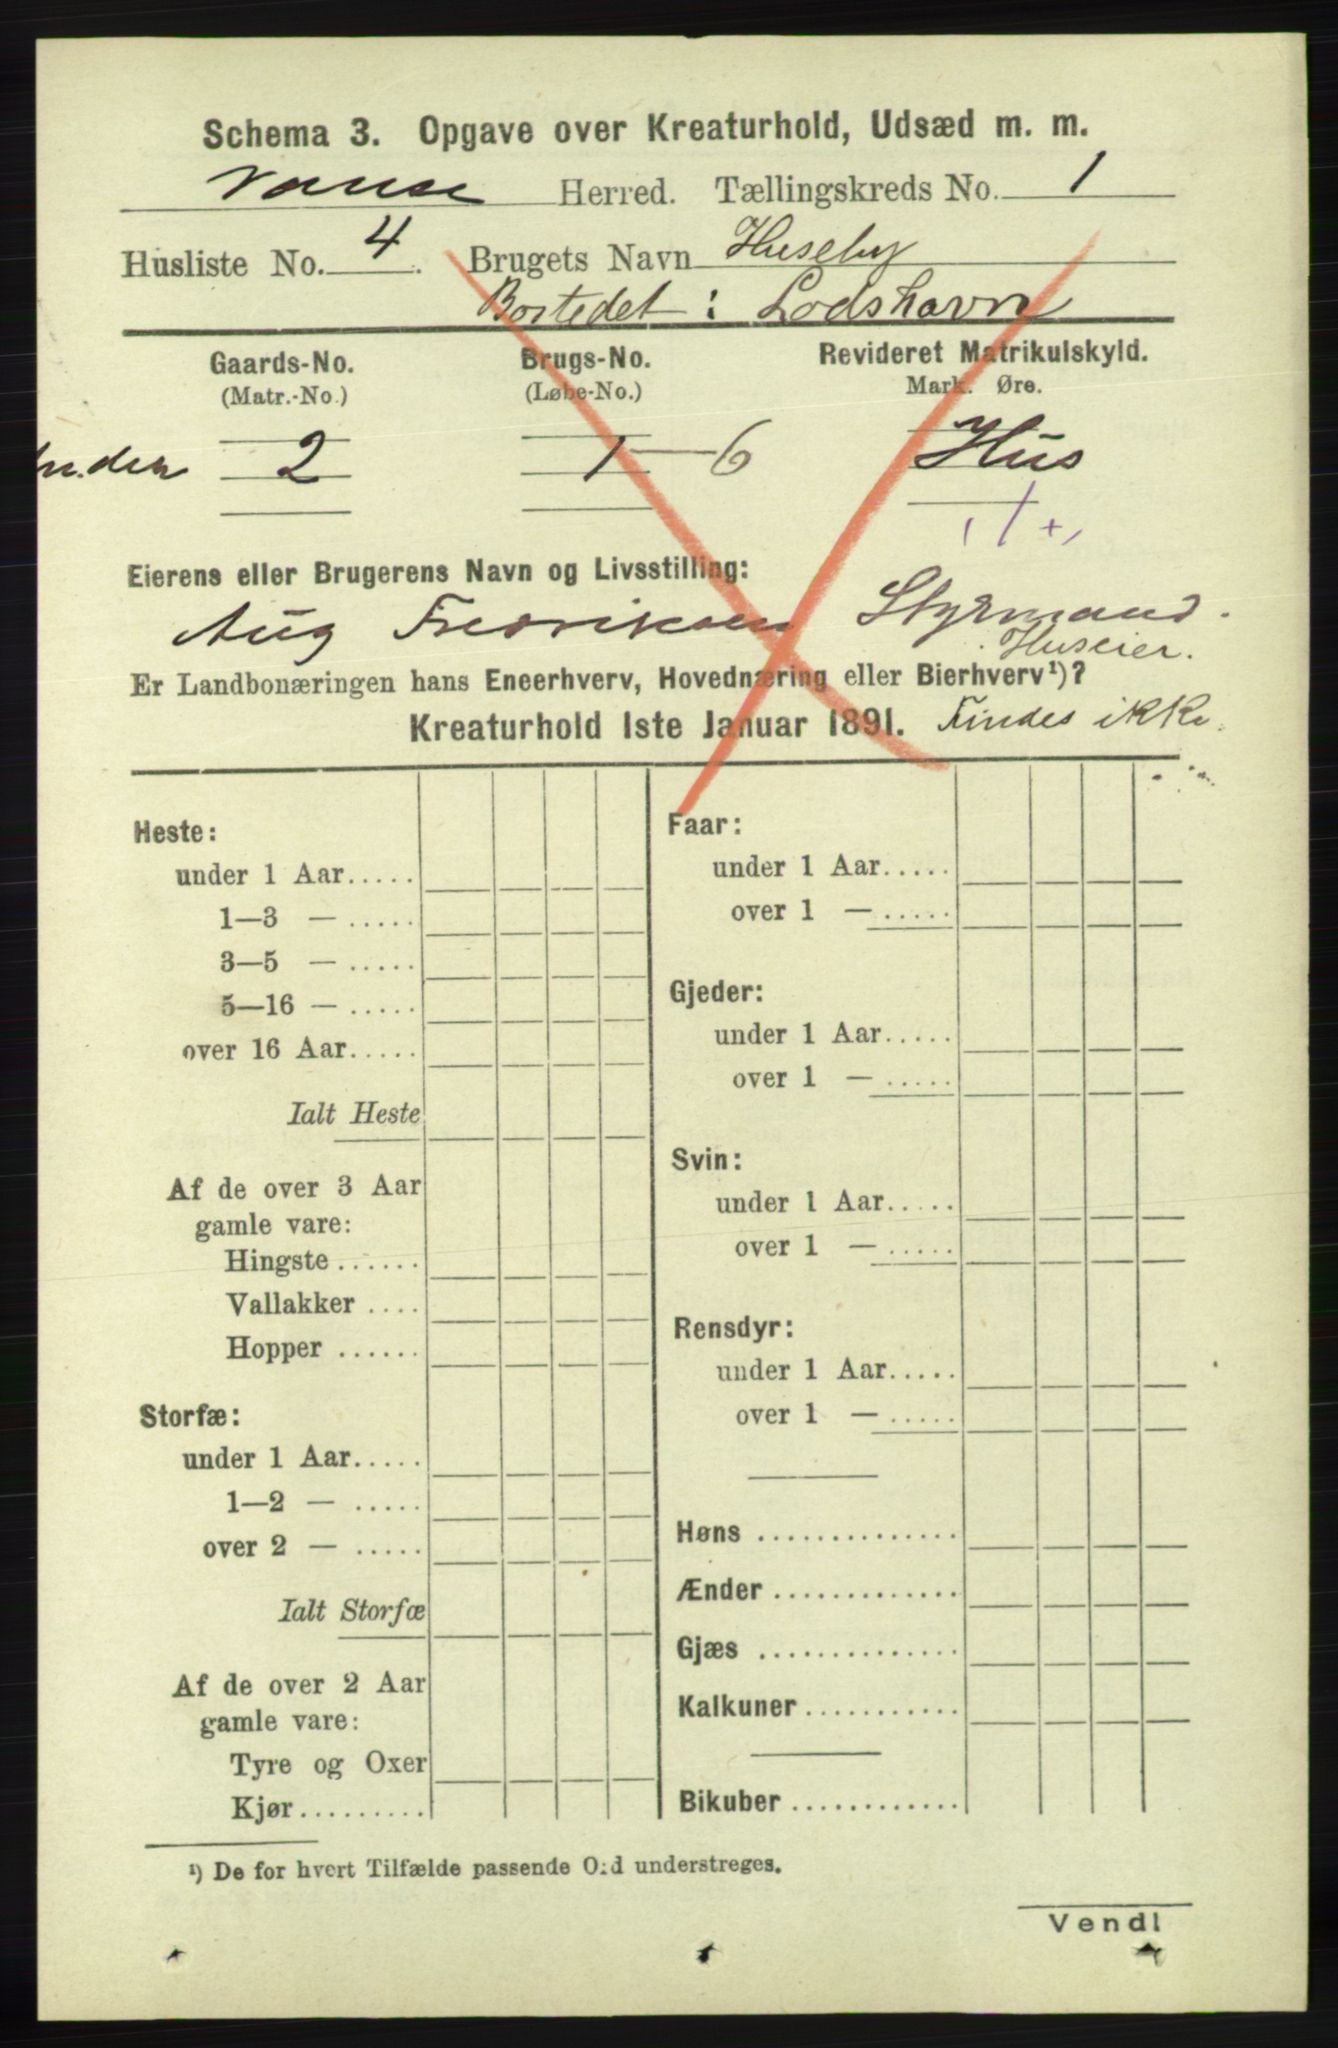 Schema 3. Opgave over Kreaturhold, Udsæd m. m.
Vanse Herred. Tællingskreds No. 1
Husliste No. 4. Brugets Navn Huseby
Bostedet: Lodshavn
Gaards-No. Brugs-No. Revideret Matrikulskyld.
(Matr.-No.) (Løbe-No.) Mark. Øre.
Under 2 1—6 Hus
Eierens eller Brugerens Navn og Livsstilling:
Aug Fredriksen Styrmand.
Huseier.
Er Landbonæringen hans Eneerhverv, Hovednæring eller Bierhverv¹)?
Kreaturhold 1ste Januar 1891. Findes ikke.
Heste:
under 1 Aar.....
1—3 — .....
3—5 — .....
5—16 — .....
over 16 Aar.....
Ialt Heste
Af de over 3 Aar
gamle vare:
Hingste......
Vallakker ....
Hopper ......
Storfæ:
under 1 Aar.....
1—2 — .....
over 2 — .....
Ialt Storfæ
Af de over 2 Aar
gamle vare:
Tyre og Oxer
Kjør.........
Faar:
under 1 Aar.....
over 1 — .....
Gjeder:
under 1 Aar.....
over 1 — .....
Svin:
under 1 Aar.....
over 1 — .....
Rensdyr:
under 1 Aar.....
over 1 — .....
Høns ..............
Ænder .............
Gjæs ..............
Kalkuner...........
Bikuber ............
¹) De for hvert Tilfælde passende O:d understreges.
Vend!